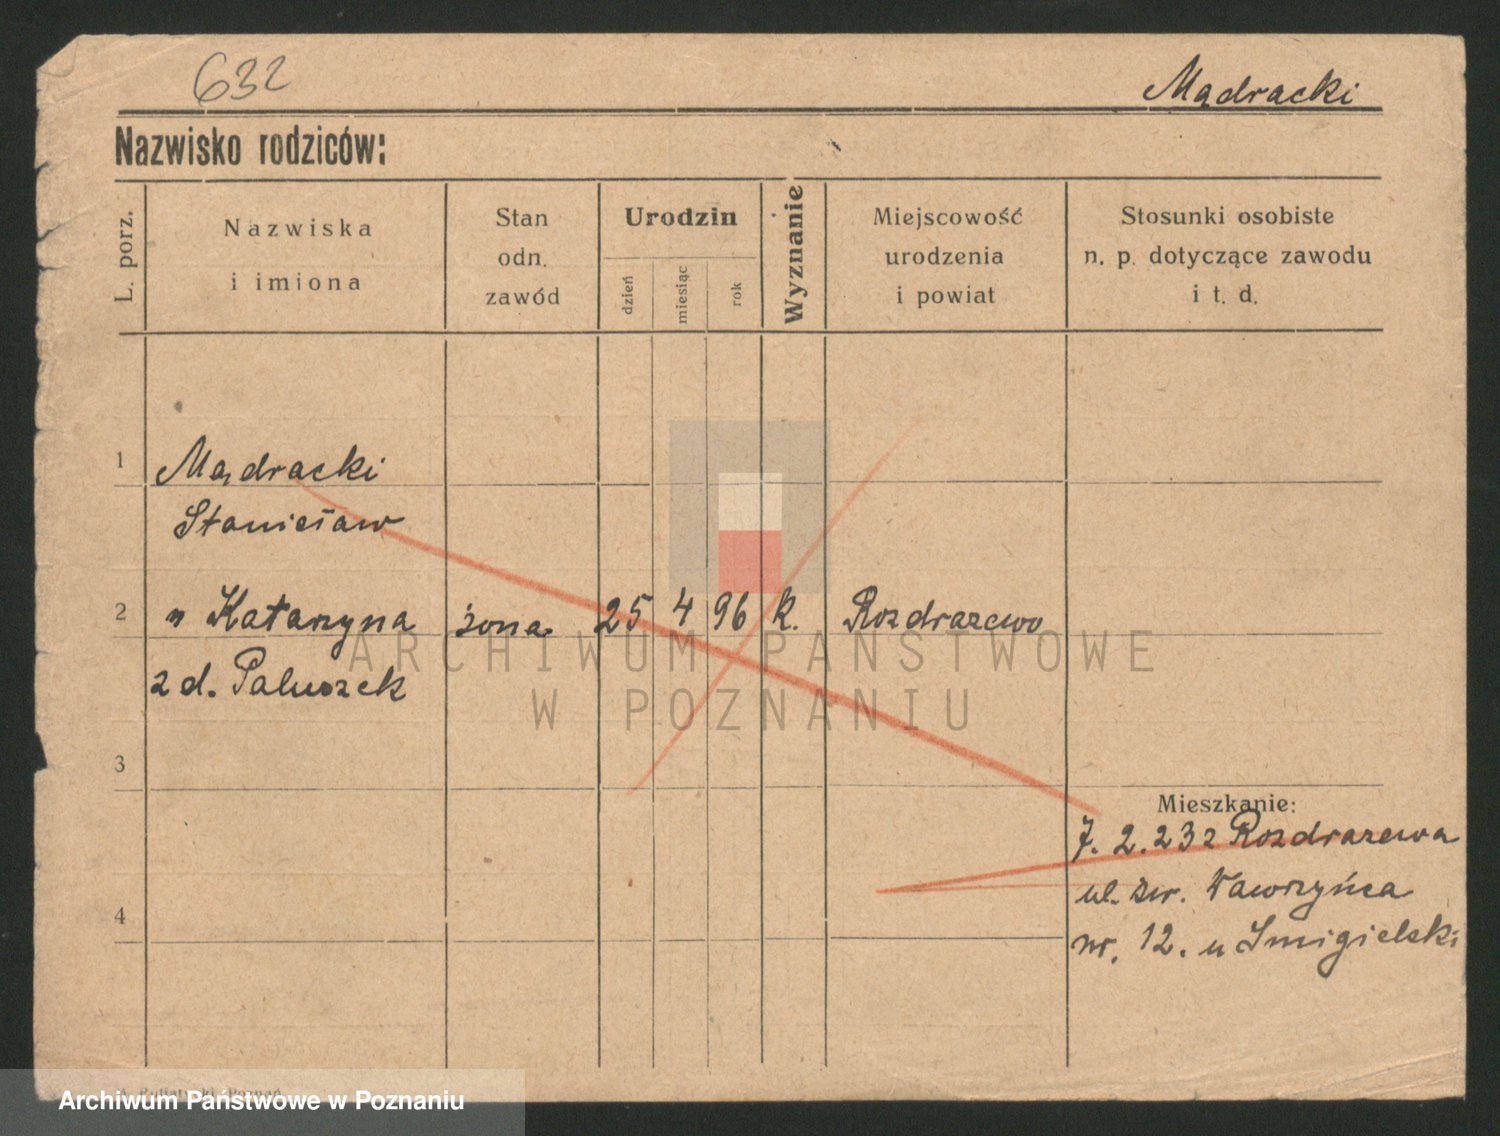 632
Mądracki
Nazwisko rodziców:
L. porz.
Nazwiska
i imiona
Stan
odn.
zawód
Urodzin
dzień
miesiąc
rok
Wyznanie
Miejscowość
urodzenia
i powiat
Stosunki osobiste
n. p. dotyczące zawodu
i t. d.
1 Mądracki
Stanisław
2 " Katarzyna żona 25 4 96 k. Rozdrazewo
z d. Paluszek
ARCHIWUM PAŃSTWOWE
W POZNANIU
3
Mieszkanie:
7. 2. 23 z Rozdrazewa
ul. św. Wawrzyńca
4
nr. 12. u Smigielski
Archiwum Państwowe w Poznaniu